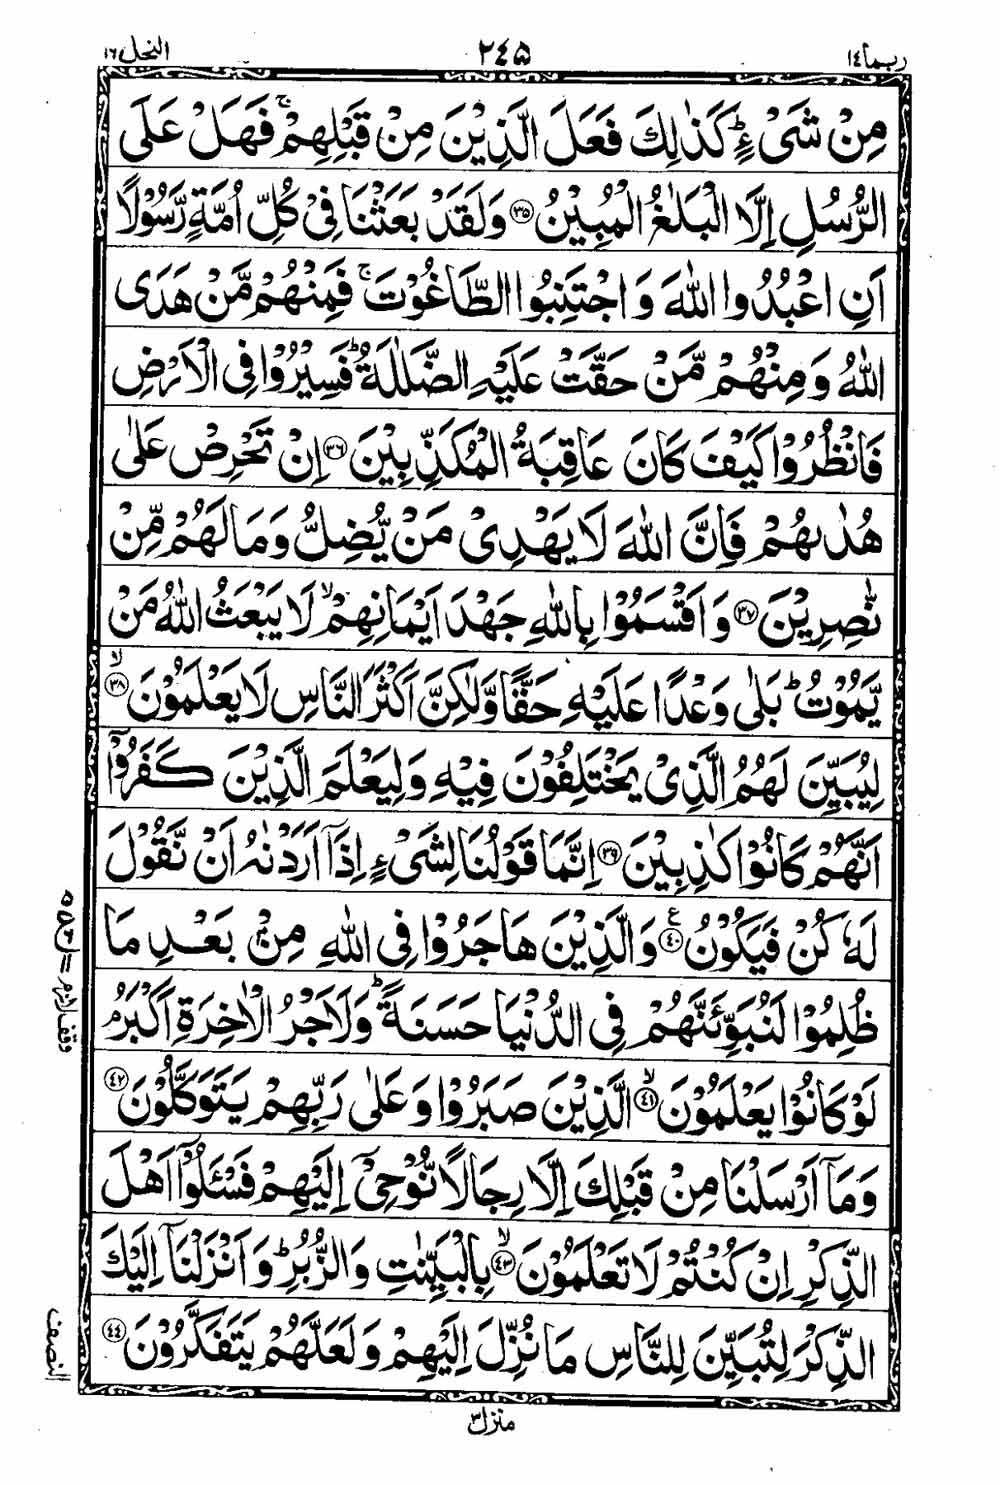 ربما ١٤ ٢٤٥ النحل ١٦
مِنۡ شَىۡءٍ‌ؕ كَذٰلِكَ فَعَلَ الَّذِيۡنَ مِنۡ قَبۡلِهِمۡ‌ۚ فَهَلۡ عَلَى
الرُّسُلِ اِلَّا الۡبَلٰغُ الۡمُبِيۡنُ ‏﴿۳۵﴾ وَلَـقَدۡ بَعَثۡنَا فِىۡ كُلِّ اُمَّةٍ رَّسُوۡلًا
اَنِ اعۡبُدُوا اللّٰهَ وَاجۡتَنِبُوا الطَّاغُوۡتَ‌ۚ فَمِنۡهُمۡ مَّنۡ هَدَى
اللّٰهُ وَمِنۡهُمۡ مَّنۡ حَقَّتۡ عَلَيۡهِ الضَّلٰلَةُ‌ ؕ فَسِيۡرُوۡا فِىۡ الۡاَرۡضِ
فَانْظُرُوۡا كَيۡفَ كَانَ عَاقِبَةُ الۡمُكَذِّبِيۡنَ ‏﴿۳۶﴾ اِنۡ تَحۡرِصۡ عَلٰى
هُدٰٮهُمۡ فَاِنَّ اللّٰهَ لَا يَهۡدِىۡ مَنۡ يُّضِلُّ‌ وَمَا لَهُمۡ مِّنۡ
نّٰصِرِيۡنَ ‏﴿۳۷﴾ وَ اَقۡسَمُوۡا بِاللّٰهِ جَهۡدَ اَيۡمَانِهِمۡ‌ۙ لَا يَبۡعَثُ اللّٰهُ مَنۡ
يَّمُوۡتُ‌ؕ بَلٰى وَعۡدًا عَلَيۡهِ حَقًّا وَّلٰـكِنَّ اَكۡثَرَ النَّاسِ لَا يَعۡلَمُوۡنَۙ ‏﴿۳۸﴾
لِيُبَيِّنَ لَهُمُ الَّذِىۡ يَخۡتَلِفُوۡنَ فِيۡهِ وَلِيَـعۡلَمَ الَّذِيۡنَ كَفَرُوۡۤا
اَنَّهُمۡ كَانُوۡا كٰذِبِيۡنَ ‏﴿۳۹﴾ اِنَّمَا قَوۡلُـنَا لِشَىۡءٍ اِذَاۤ اَرَدۡنٰهُ اَنۡ نَّقُوۡلَ
لَهٗ كُنۡ فَيَكُوۡنُ ‏﴿۴۰﴾ ع وَالَّذِيۡنَ هَاجَرُوۡا فِى اللّٰهِ مِنۡۢ بَعۡدِ مَا
ظُلِمُوۡا لَـنُبَوِّئَنَّهُمۡ فِى الدُّنۡيَا حَسَنَةً‌ ؕ وَلَاَجۡرُ الۡاٰخِرَةِ اَكۡبَرُ‌ۘ
لَوۡ كَانُوۡا يَعۡلَمُوۡنَۙ ‏﴿۴۱﴾ الَّذِيۡنَ صَبَرُوۡا وَعَلٰى رَبِّهِمۡ يَتَوَكَّلُوۡنَ ‏﴿۴۲﴾
وَمَاۤ اَرۡسَلۡنَا مِنۡ قَبۡلِكَ اِلَّا رِجَالًا نُّوۡحِىۡۤ اِلَيۡهِمۡ‌ فَسۡـَٔـلُوۡۤا اَهۡلَ
الذِّكۡرِ اِنۡ كُنۡتُمۡ لَا تَعۡلَمُوۡنَۙ ‏﴿۴۳﴾ بِالۡبَيِّنٰتِ وَالزُّبُرِ‌ؕ وَاَنۡزَلۡنَاۤ اِلَيۡكَ
الذِّكۡرَ لِتُبَيِّنَ لِلنَّاسِ مَا نُزِّلَ اِلَيۡهِمۡ وَلَعَلَّهُمۡ يَتَفَكَّرُوۡنَ ‏﴿۴۴﴾
وقف لازم
النصف
منزل ٣